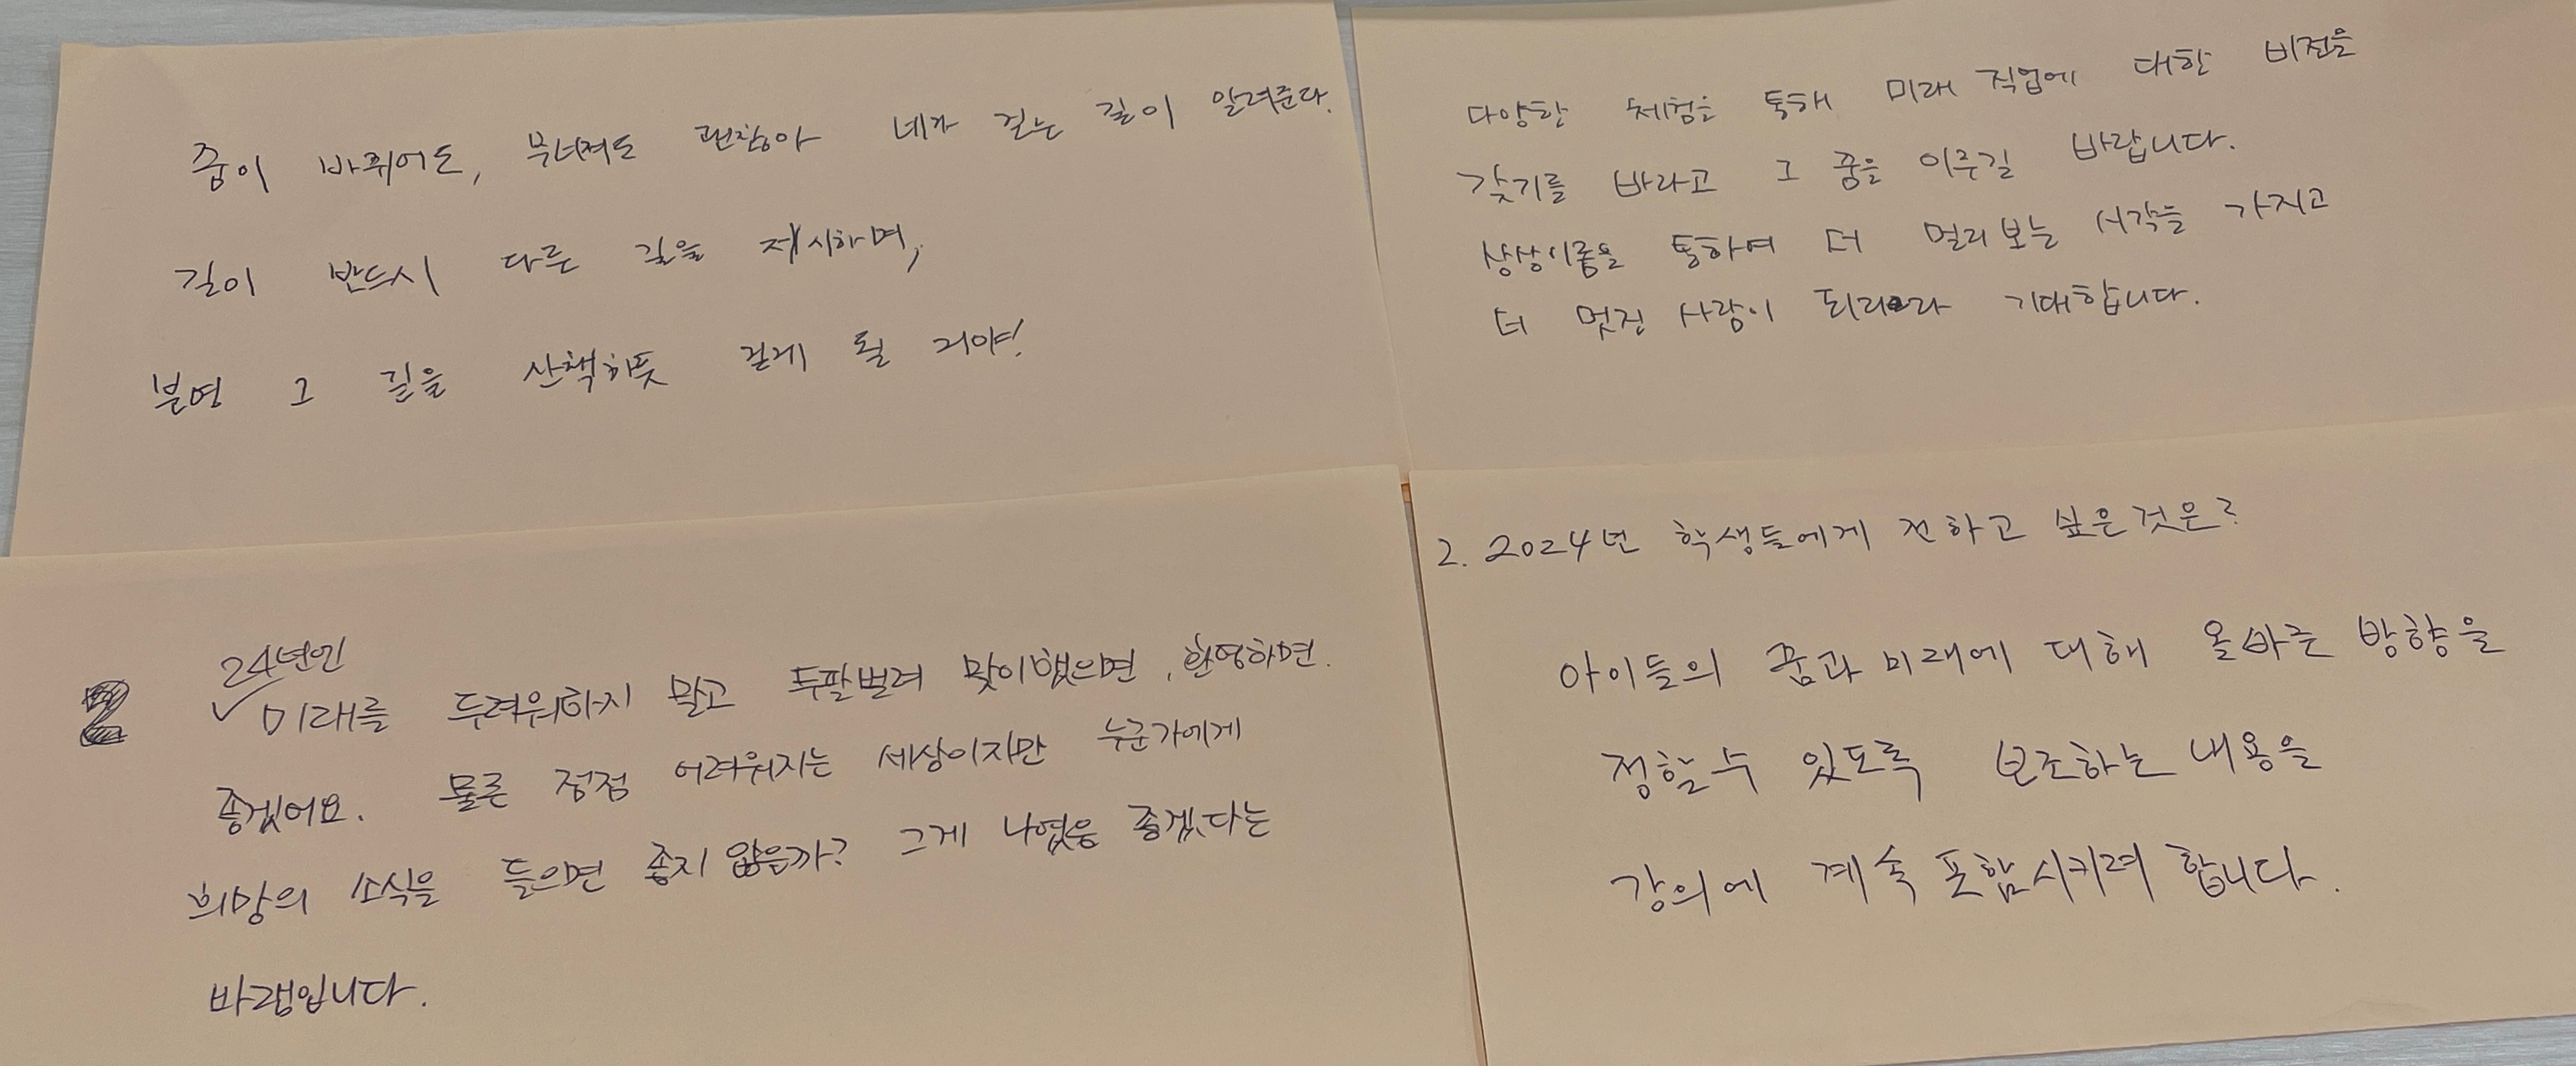 꿈이 바뀌어도, 무너져도 괜찮아 네가 걷는 길이 알려준다.
길이 반드시 다른 길을 제시하며,
분명 그 길을 산책하듯 걷게 될 거야!
다양한 체험을 통해 미래 직업에 대한 비전을
갖기를 바라고 그 꿈을 이루길 바랍니다.
상상이룸을 통하여 더 멀리보는 시각을 가지고
더 멋진 사람이 되리라 기대합니다.
2 24년인
미래를 두려워하지 말고 두팔벌려 맞이했으면, 환영하면
좋겠어요. 물론 점점 어려워지는 세상이지만 누군가에게
희망의 소식을 들으면 좋지 않을까? 그게 나였음 좋겠다는
바램입니다.
2. 2024년 학생들에게 전하고 싶은것은?
아이들의 꿈과 미래에 대해 올바른 방향을
정할 수 있도록 보조하는 내용을
강의에 계속 포함시키려 합니다.